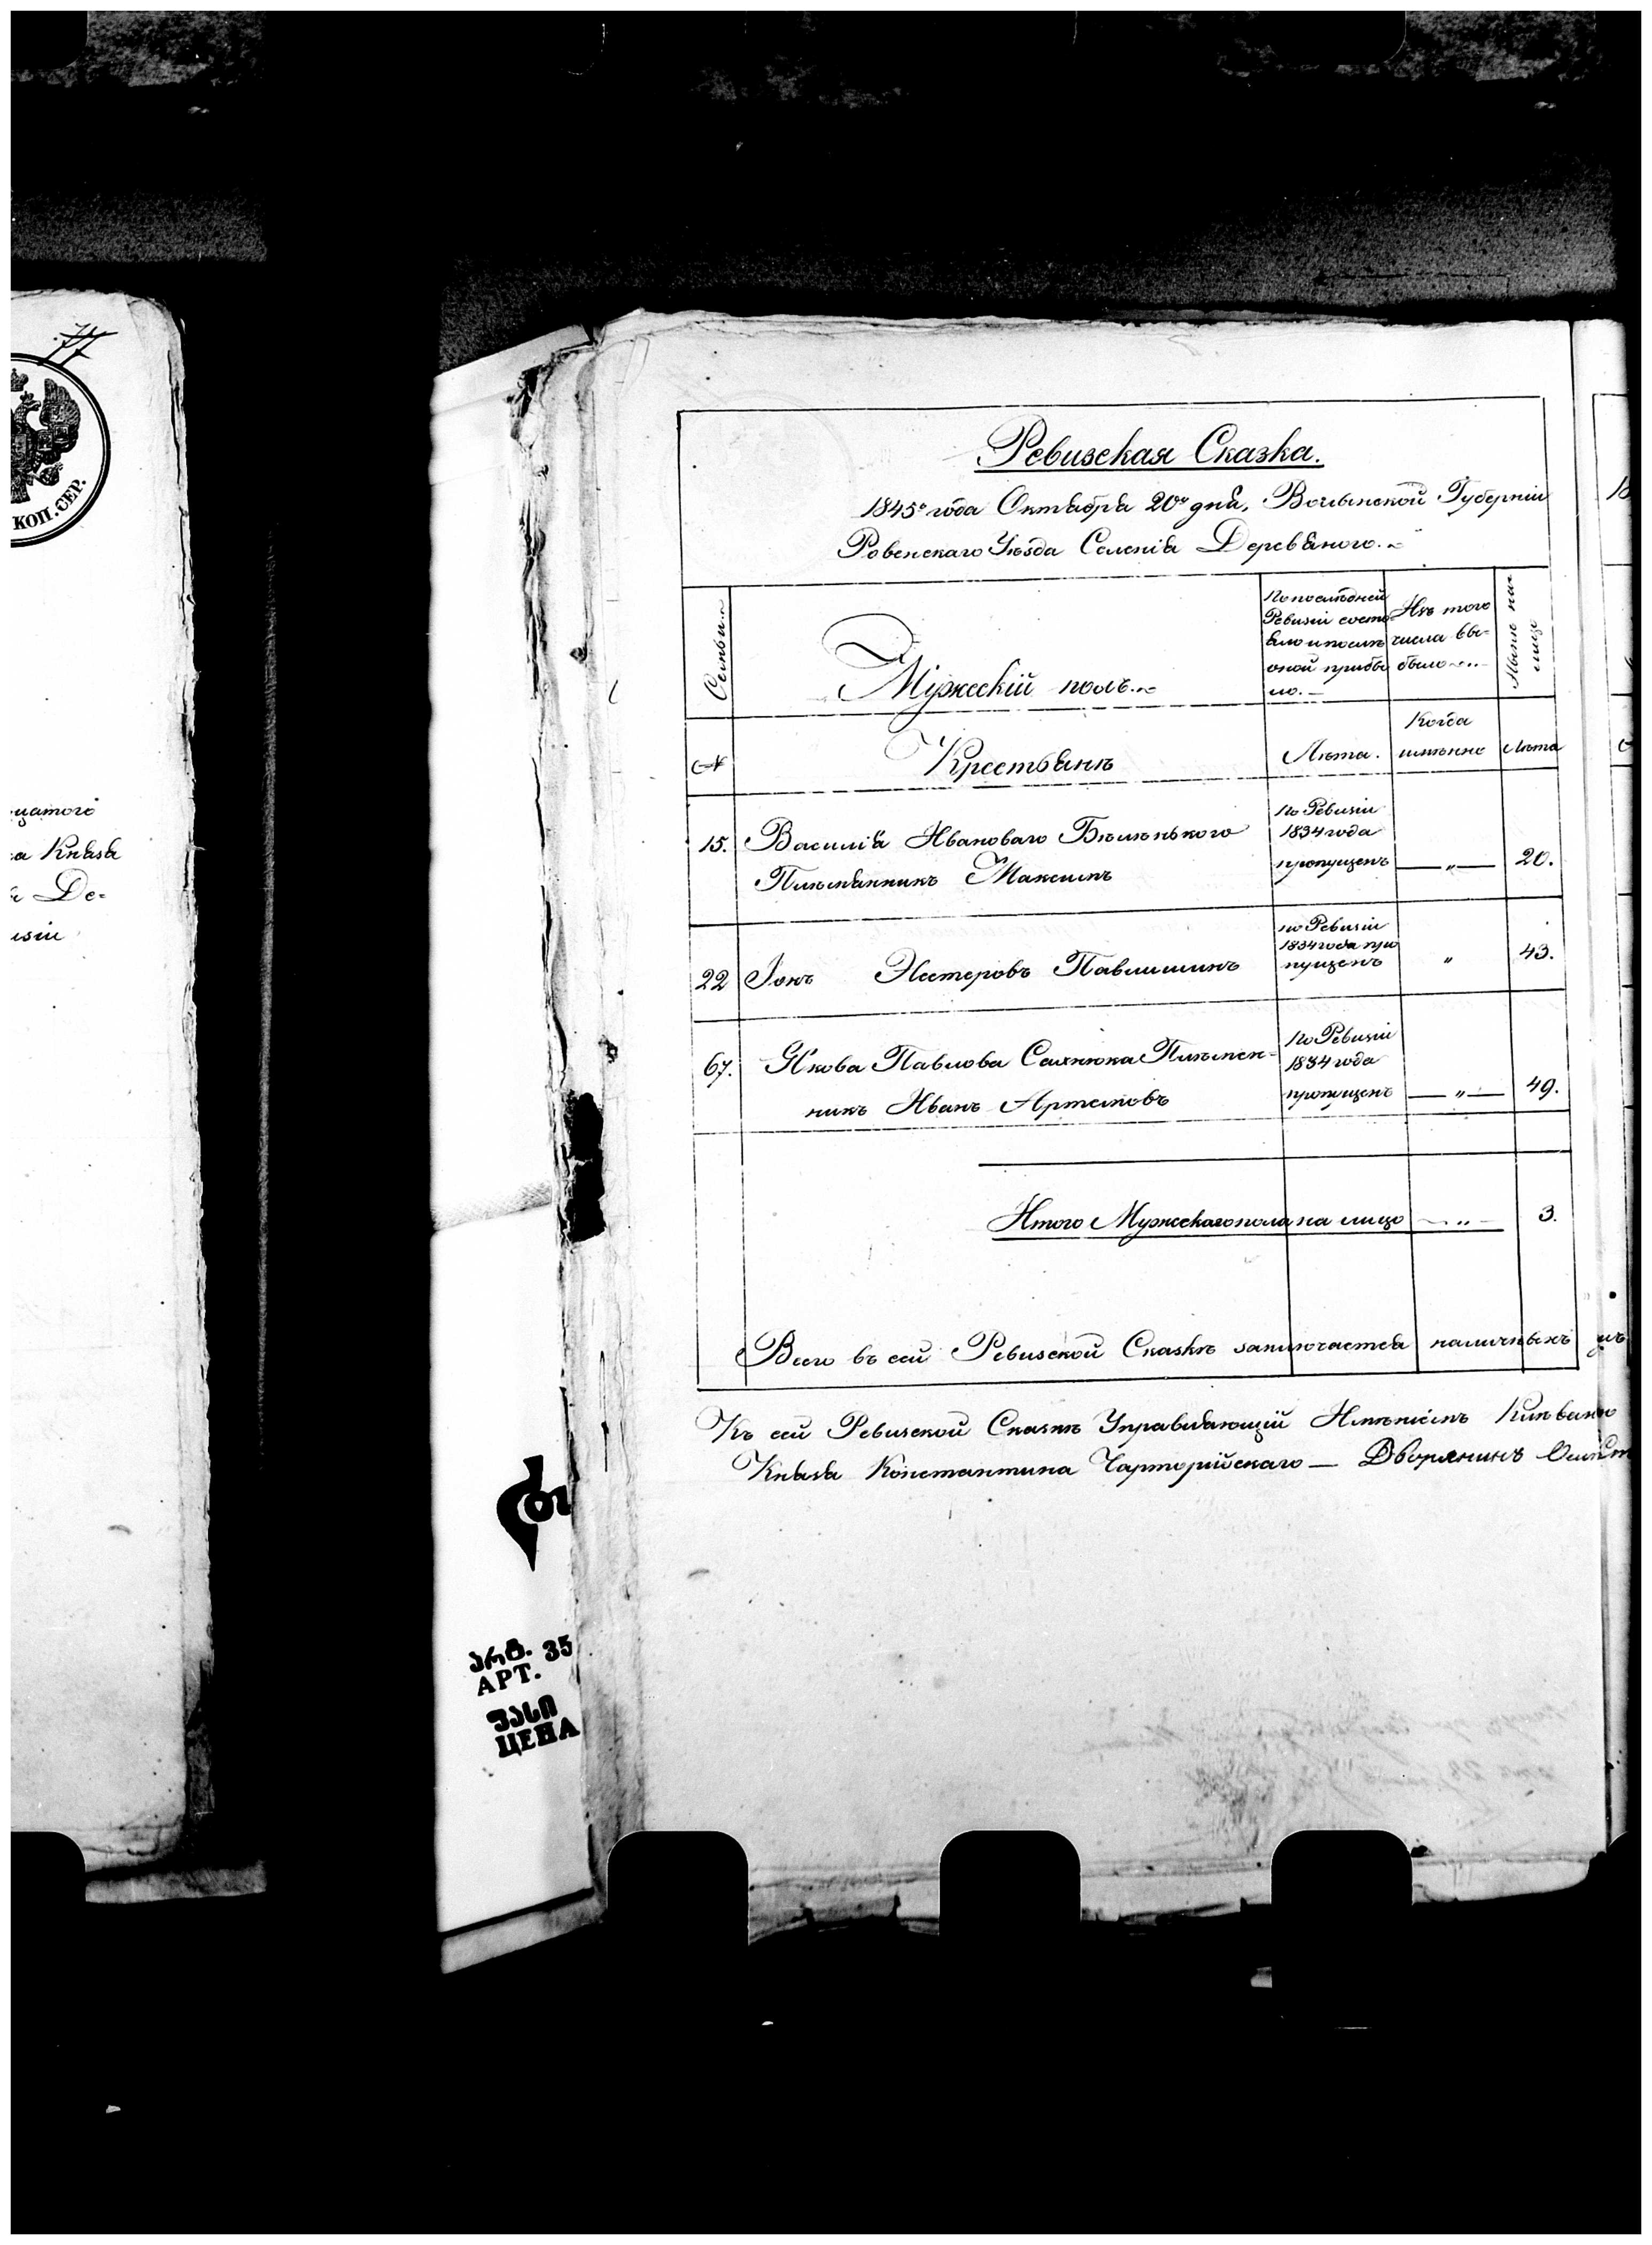 77
КОП. СЕР.
Князя
Де=
Ревизская Сказка.
1845го года Октября 20го дня, Волынской Губерніи
Ровенскаго Уѣзда Селенія Деревяного.
Семьи
Мужескій полъ.
По послѣдней
Ревизіи состо
яло и послѣ
оной прибы
ло.
Изъ того
числа вы-
было
Нынѣ на
лице
№
Крестьянѣ
Лѣта.
Когда
имѣнно
Лѣта
15.
Василія Ивановаго Бѣлѣнького
Племянникъ Максимъ
по Ревизіи
1834 года
пропущенъ
— „ —
20.
22
Іонъ Нестеровъ Павлишинъ
по Ревизіи
1834 года про
пущенъ
„
43.
67.
Якова Павлова Сахнюка Племен-
никъ Иванъ Артемовъ
по Ревизіи
1834 года
пропущенъ
— „ —
49.
Итого Мужескаго пола на лицо — „ — 3.
Всего въ сей Ревизской Сказкѣ заключается наличныхъ
Къ сей Ревизской Сказкѣ Управляющій Имѣніемъ
Князя Константина Чарторійскаго — Дворянинъ
არტ. 35
АРТ.
ფასი
ЦЕНА